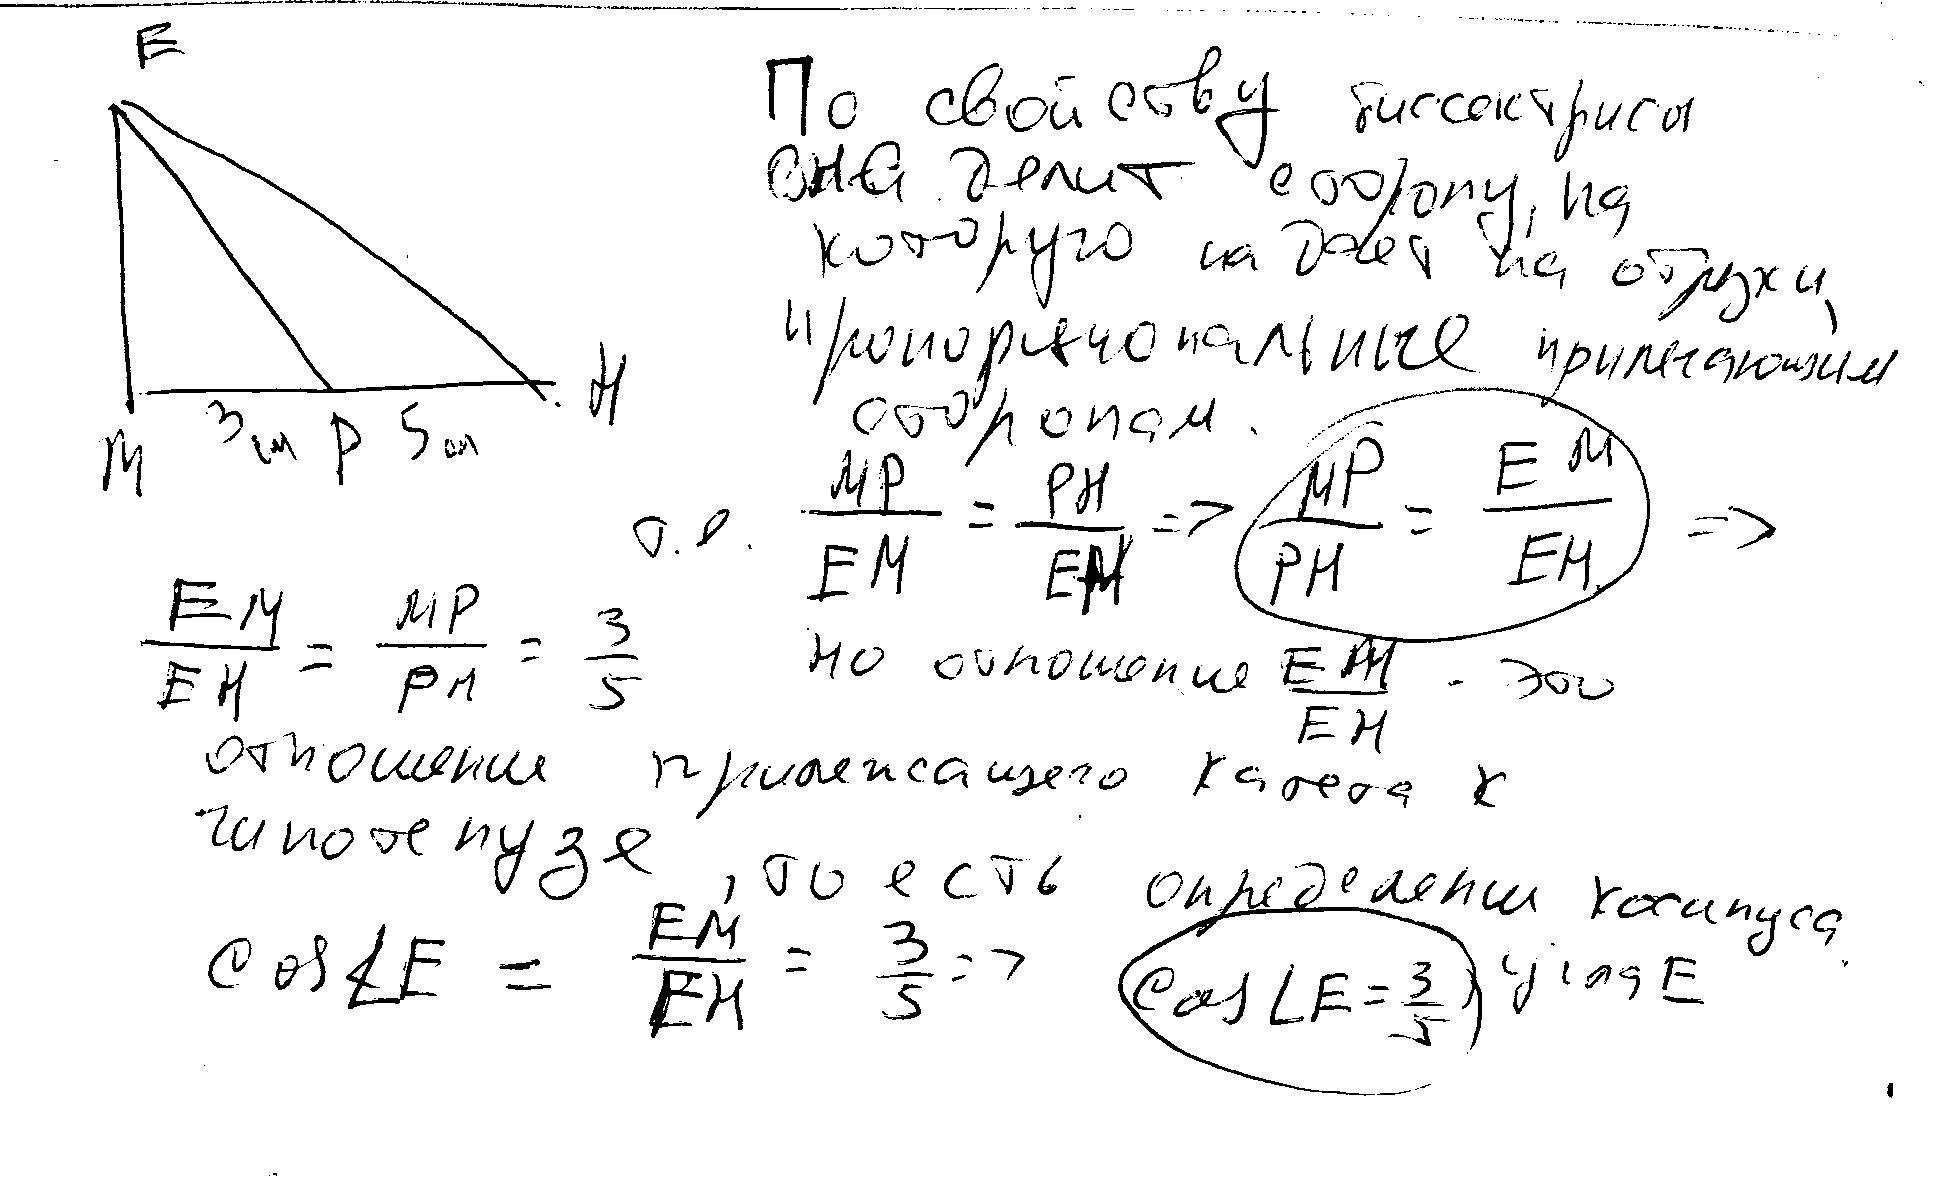 E
По свойству биссектрисы
она делит сторону, на
которую падает на отрзки,
пропорциональные прилегающим
сторонам.
H
M 3 см P 5 см
т.е. MP/EM = PH/EH => MP/PH = EM/EH =>
EM/EH = MP/PH = 3/5 но отношение EM/EH - это
отношение прилежащего катета к
гипотенузе, то есть определении косинуса
cos∠E = EM/EH = 3/5 => cos∠E = 3/5, угла E